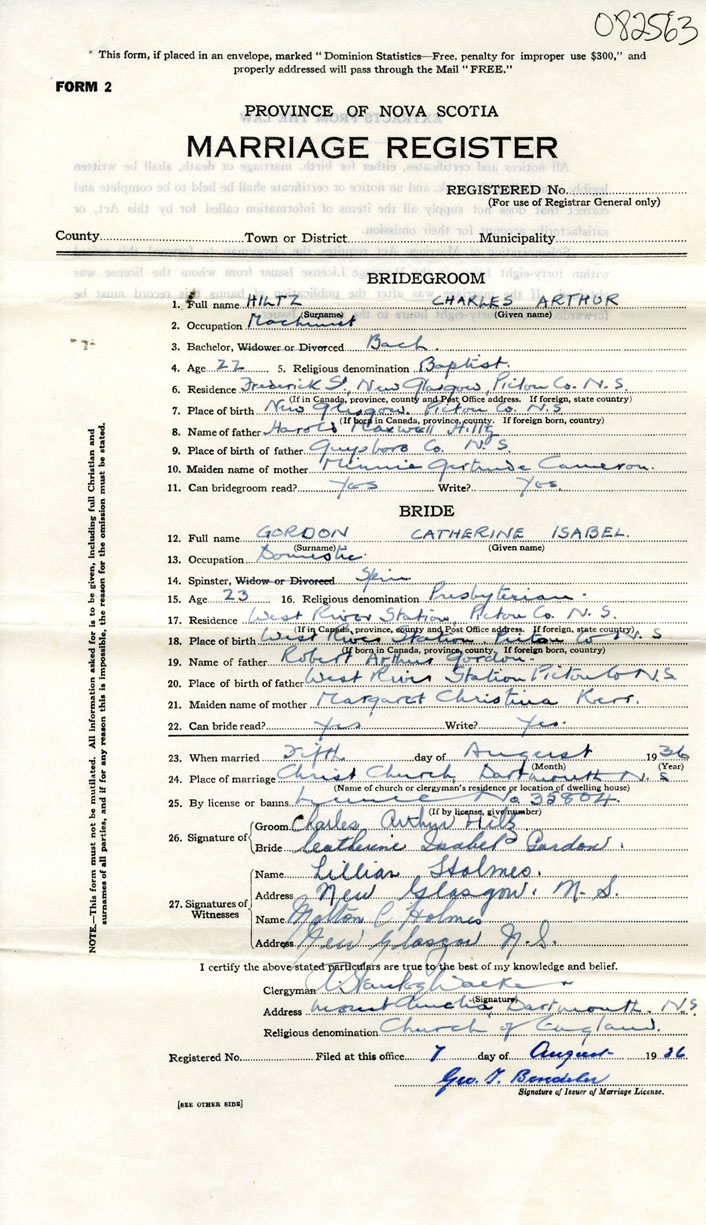 082563
* This form, if placed in an envelope, marked "Dominion Statistics—Free, penalty for improper use $300," and
properly addressed will pass through the Mail "FREE."
FORM 2
PROVINCE OF NOVA SCOTIA
MARRIAGE REGISTER
REGISTERED No.
(For use of Registrar General only)
County Town or District Municipality
BRIDEGROOM
1. Full name HILTZ CHARLES ARTHUR
(Surname) (Given name)
2. Occupation Machinist
3. Bachelor, Widower or Divorced Bach.
4. Age 22 5. Religious denomination Baptist.
6. Residence Frederick St, New Glasgow, Pictou Co. N.S.
(If in Canada, province, county and Post Office address. If foreign, state country)
7. Place of birth New Glasgow. Pictou Co. N.S
(If born in Canada, province, county. If foreign born, country)
8. Name of father Harold Maxwell Hiltz
9. Place of birth of father Guysboro Co. N.S.
10. Maiden name of mother Minnie Gertrude Cameron.
11. Can bridegroom read? Yes Write? Yes.
BRIDE
12. Full name GORDON CATHERINE ISABEL.
(Surname) (Given name)
13. Occupation Domestic.
14. Spinster, Widow or Divorced Spin
15. Age 23 16. Religious denomination Presbyterian.
17. Residence West River Station, Pictou Co. N.S.
(If in Canada, province, county and Post Office address. If foreign, state country)
18. Place of birth West River Station, Pictou Co N.S
(If born in Canada, province, county. If foreign born, country)
19. Name of father Robert Arthur Gordon.
20. Place of birth of father West River Station Pictou Co N.S
21. Maiden name of mother Margaret Christina Kerr.
22. Can bride read? Yes Write? Yes.
23. When married Fifth day of August 1936
(Month) (Year)
24. Place of marriage Christ Church, Dartmouth N.S
(Name of church or clergyman's residence or location of dwelling house)
25. By license or banns License No 35804.
(If by license, give number)
26. Signature of Groom Charles Arthur Hiltz
Bride Catherine Isabel Gordon.
27. Signatures of Witnesses
Name Lillian Holmes.
Address New Glasgow. N.S.
Name C. Holmes
Address New Glasgow N.S.
NOTE.—This form must not be mutilated. All information asked for is to be given, including full Christian and
surnames of all parties, and if for any reason this is impossible, the reason for the omission must be stated.
I certify the above stated particulars are true to the best of my knowledge and belief.
Clergyman
(Signature)
Address Mount Amelia Dartmouth. N.S.
Religious denomination Church of England.
Registered No. Filed at this office 7 day of August 1936
Geo. T.
Signature of Issuer of Marriage License.
[SEE OTHER SIDE]